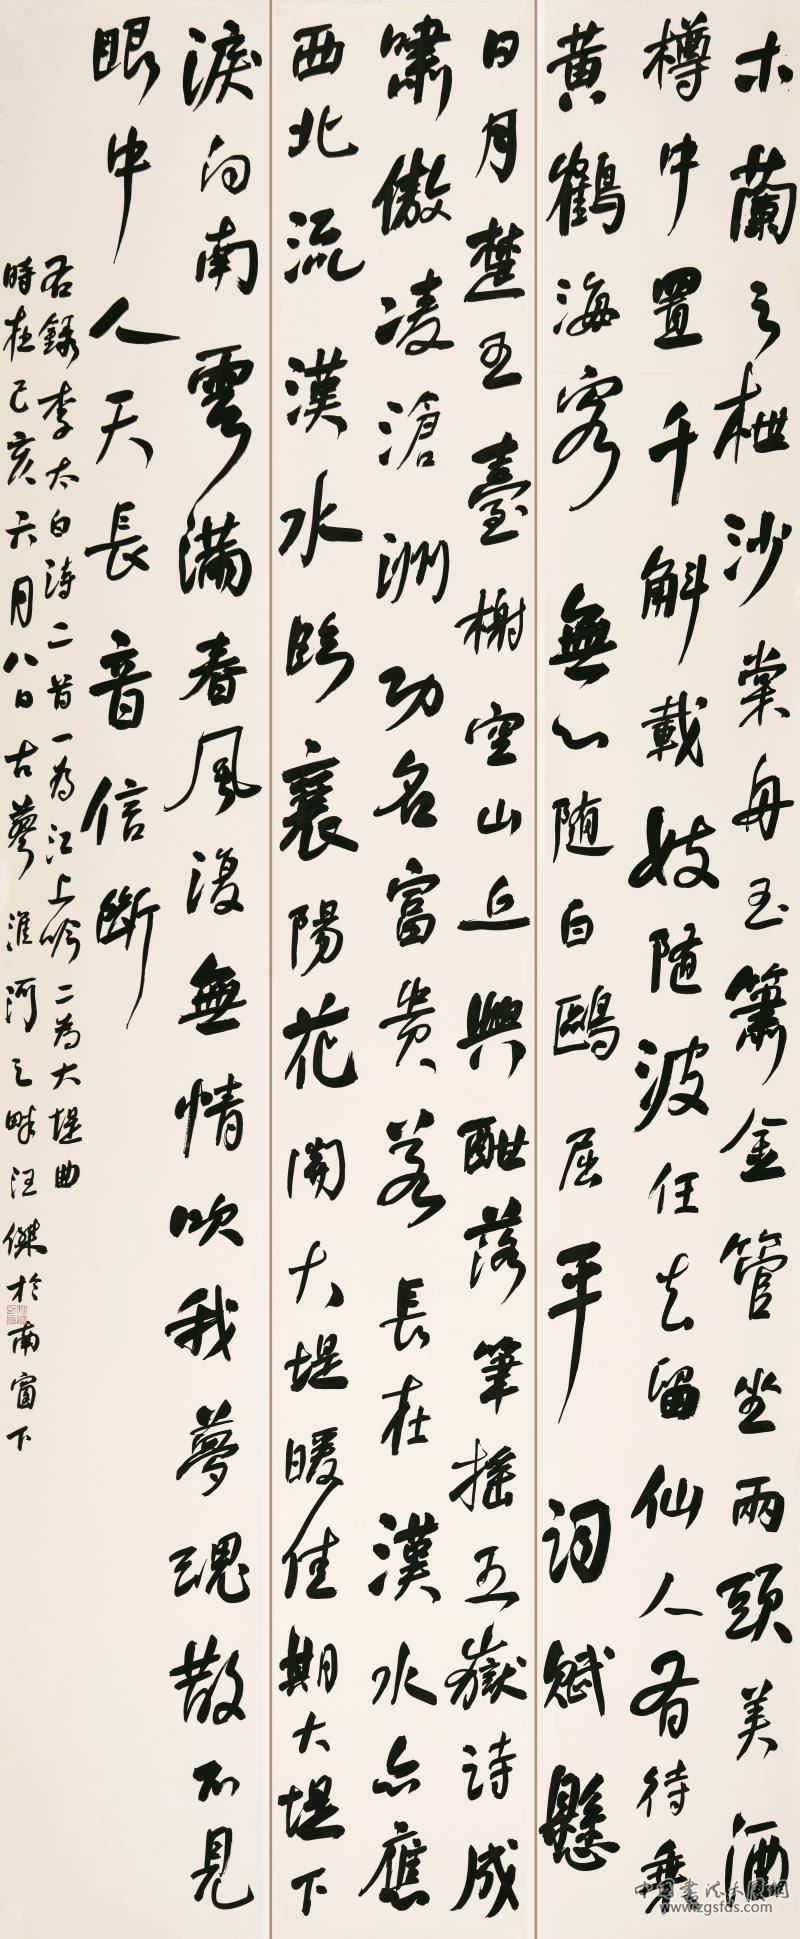 木蘭之枻沙棠舟玉簫金管坐兩頭美酒
樽中置千斛載妓隨波任去留仙人有待乘
黃鶴海客無心随白鷗屈平詞賦懸
日月楚王臺榭空山丘興酣落筆摇五嶽詩成
嘯傲凌滄洲功名富貴若長在漢水亦應
西北流漢水臨襄陽花開大堤暖佳期大堤下
淚向南雲滿春風復無情吹我夢魂散不見
眼中人天長音信斷
右錄李太白詩二首一為江上吟二為大堤曲
時在己亥六月八日古蓼淮河之畔汪傑於南窗下
www.zgsfds.com